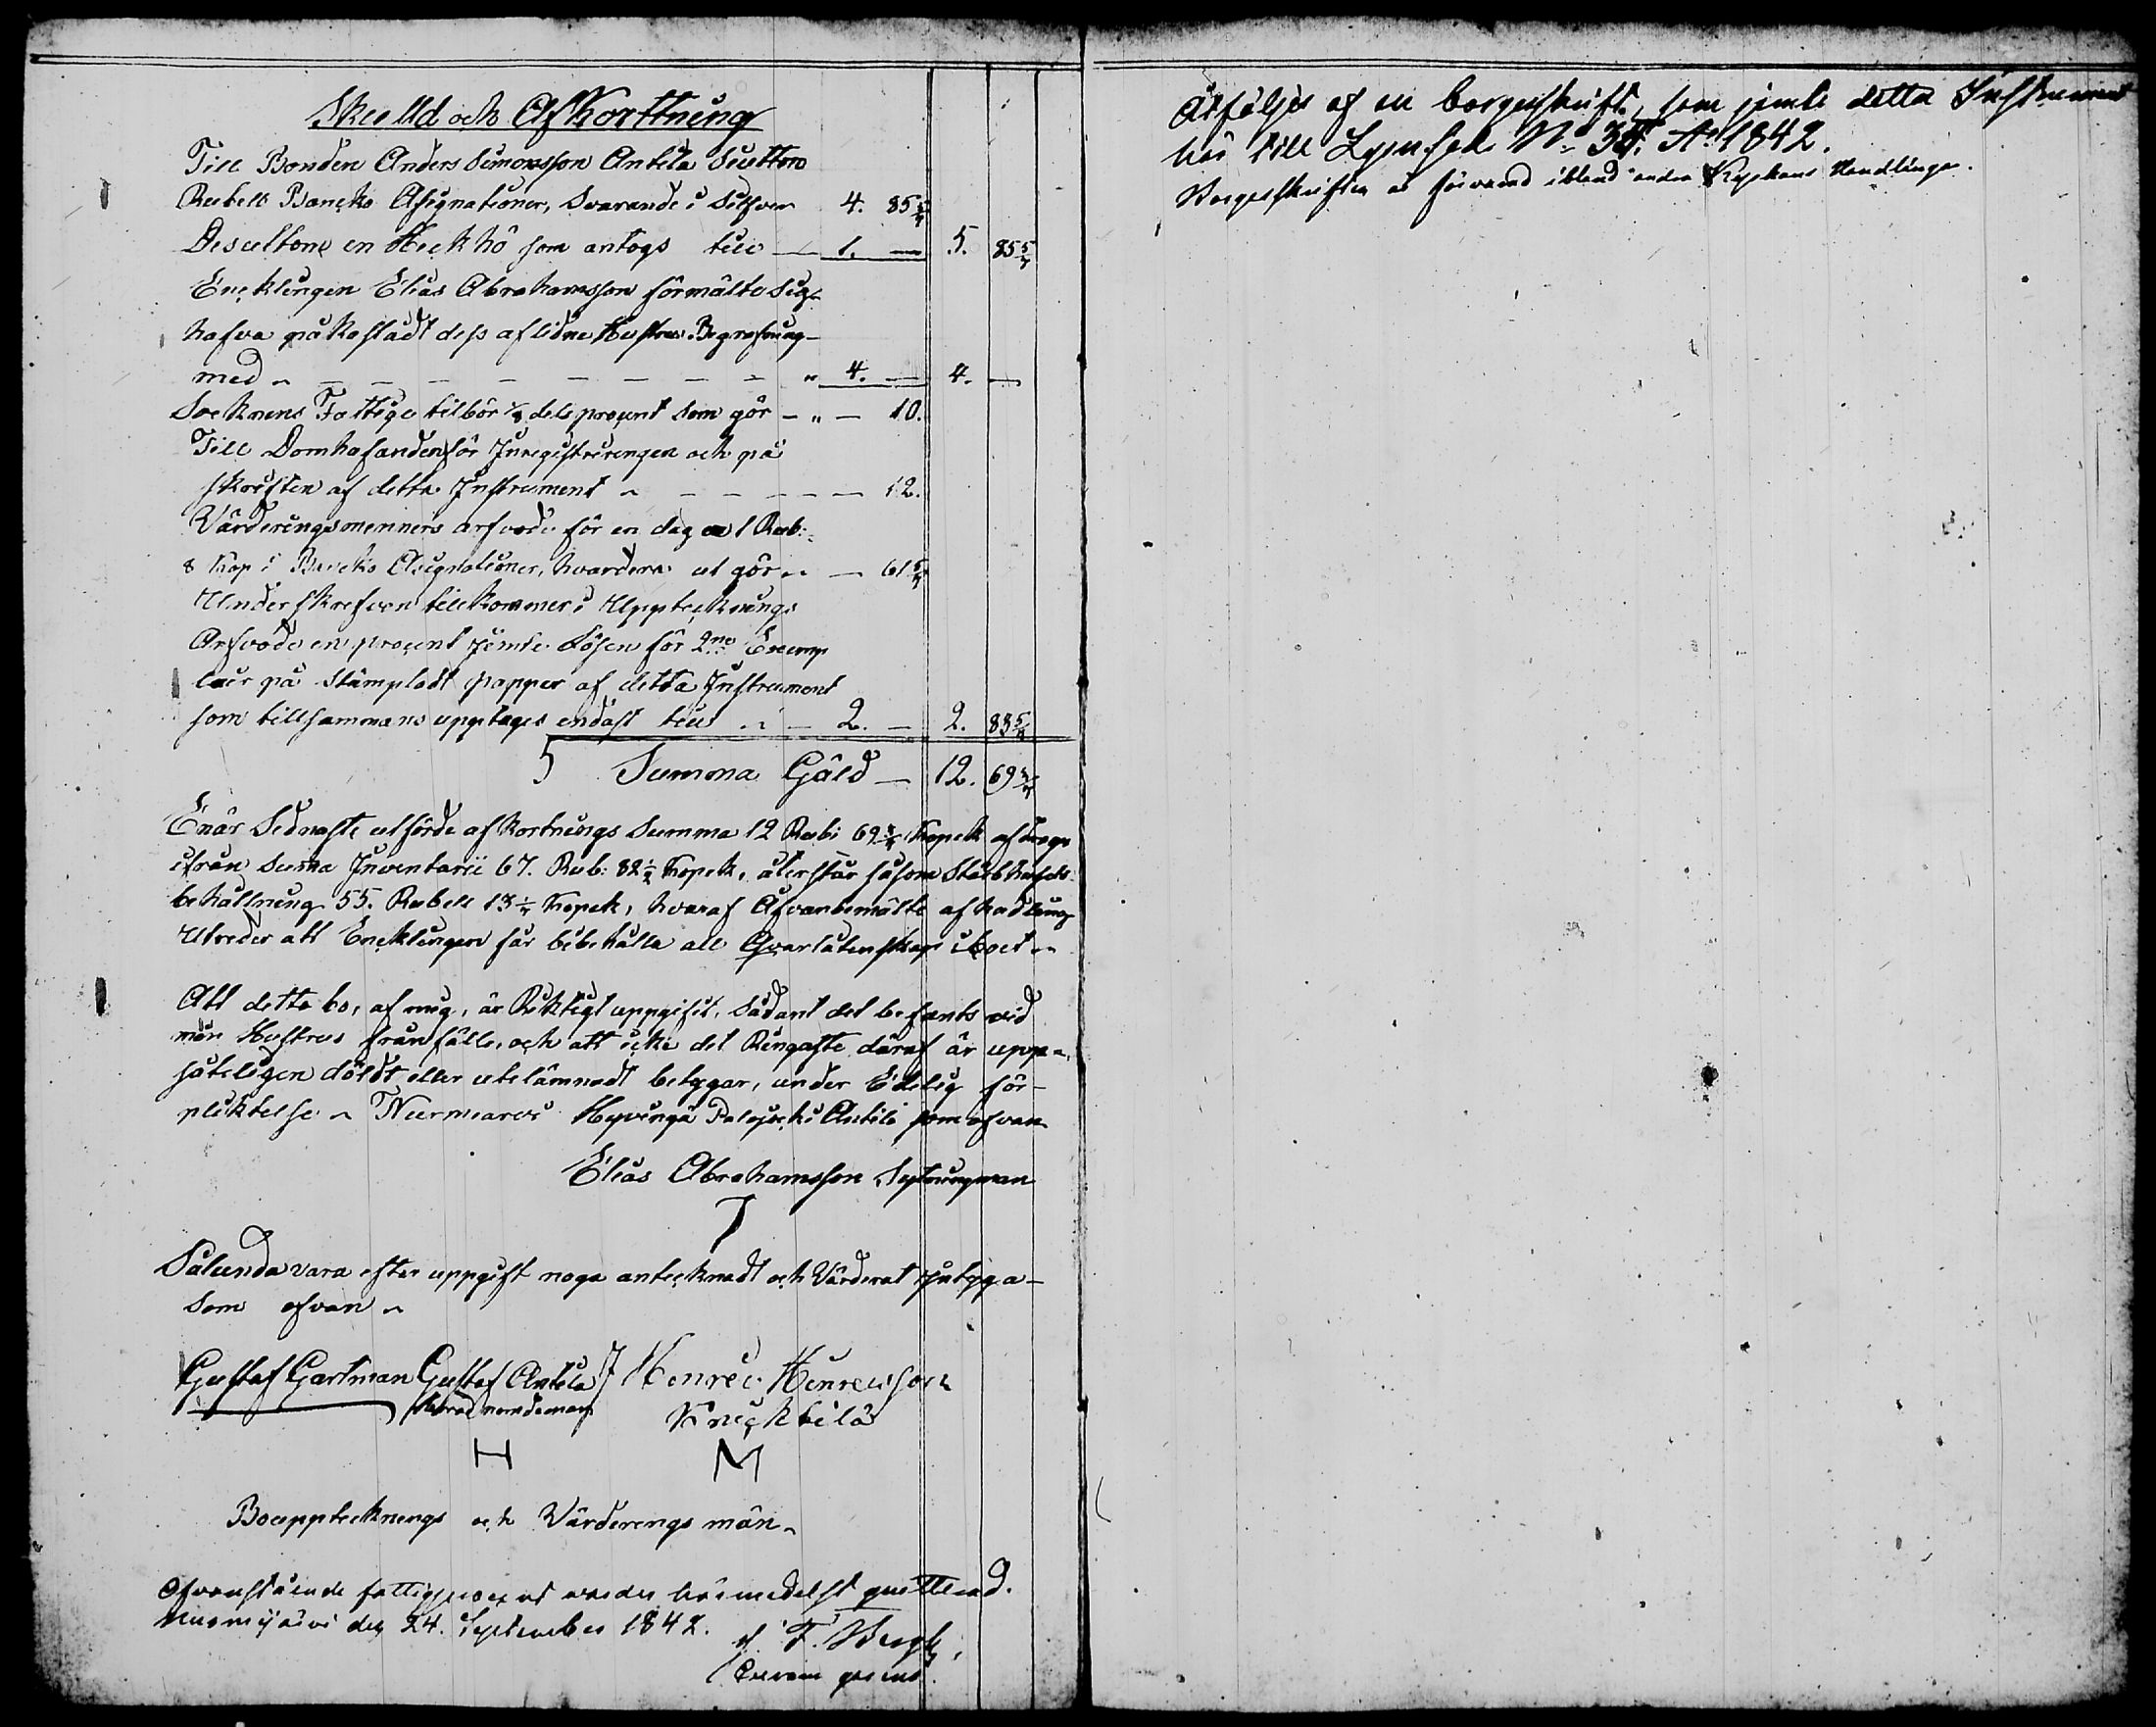 Skulld och Afkorttning
Till Bonden Anders Simonsson Antila Siutton
Rubell Bancko Assignationer, Svarande i Silfver 4. 85 5/7
Desultone en Heck hö som antogs till — 1. — 5. 85 5/7
Encklingen Elias Abrahamsson förmälte Sig
hafva påkostadt dess aflidne Hustrus Begrafning
med — — — — — — — — " 4. — 4. —
Socknens Fattige tilbör 1/8 dels procent som gör — " — 10.
Till Domhafanden för Inregistreringen och på
skriften af detta Instrument — — — — — 12.
Värderingsmenners arfvode för en dag a 1 Rub:
8 Kop i Bancko Assignationer, hvardera ut gör — 61 5/7
Underskrefven tillkommer i Upptecknings
Arfvode en procent jemte Lösen för 2ne Exemp
lair på Stämpladt papper af detta Instrument
som tillsammans upptages endast till — 2. — 2. 83 5/7
Summa Gäld — 12. 69 3/7
Enär Sednaste utförde afkortnings Summa 12 Rub: 69 3/7 Kopek afdrages
ifrån Summa Inventarii 67. Rub: 82 4/7 Kopek, återstår såsom Stärbhusets
behållning 55. Rubell 13 1/7 Kopek, hvaraf Ofvanbemälte afhadling
Utreder att Encklingen får bibehålla all Qvarlåtenskap i boet
Att detta bo, af mig, är Riktigt uppgifit, Sådant det befants vid
min Hustrus frånfälle, och att icke det Ringaste däraf är upp-
såteligen döldt eller utelämnadt betygar, under Edelig för-
pliktelse Nurmiarvi Hyvingä Palojocki Antila som ofvan
Elias Abrahamsson Sytningman
Sålunda vara efter uppgift noga antecknadt och Värderat intyga
som ofvan
Gustaf Gartman Gustaf Antila Henric Henricsson
Härad nämdeman Knickkilä
H M
Bouppteknings och Värderings män
Ofvanstående fattigprocent varder härmedelst quitterad.
Nurmijärvi den 24. September 1842.
af F. Bergh,
Åtföljes af en borgesskrift, som jemte detta Instrument
hör till Lysnson No 34. Ao 1842.
Borgesskriften är förvarad ibland andra Kyrkans Handlingar.